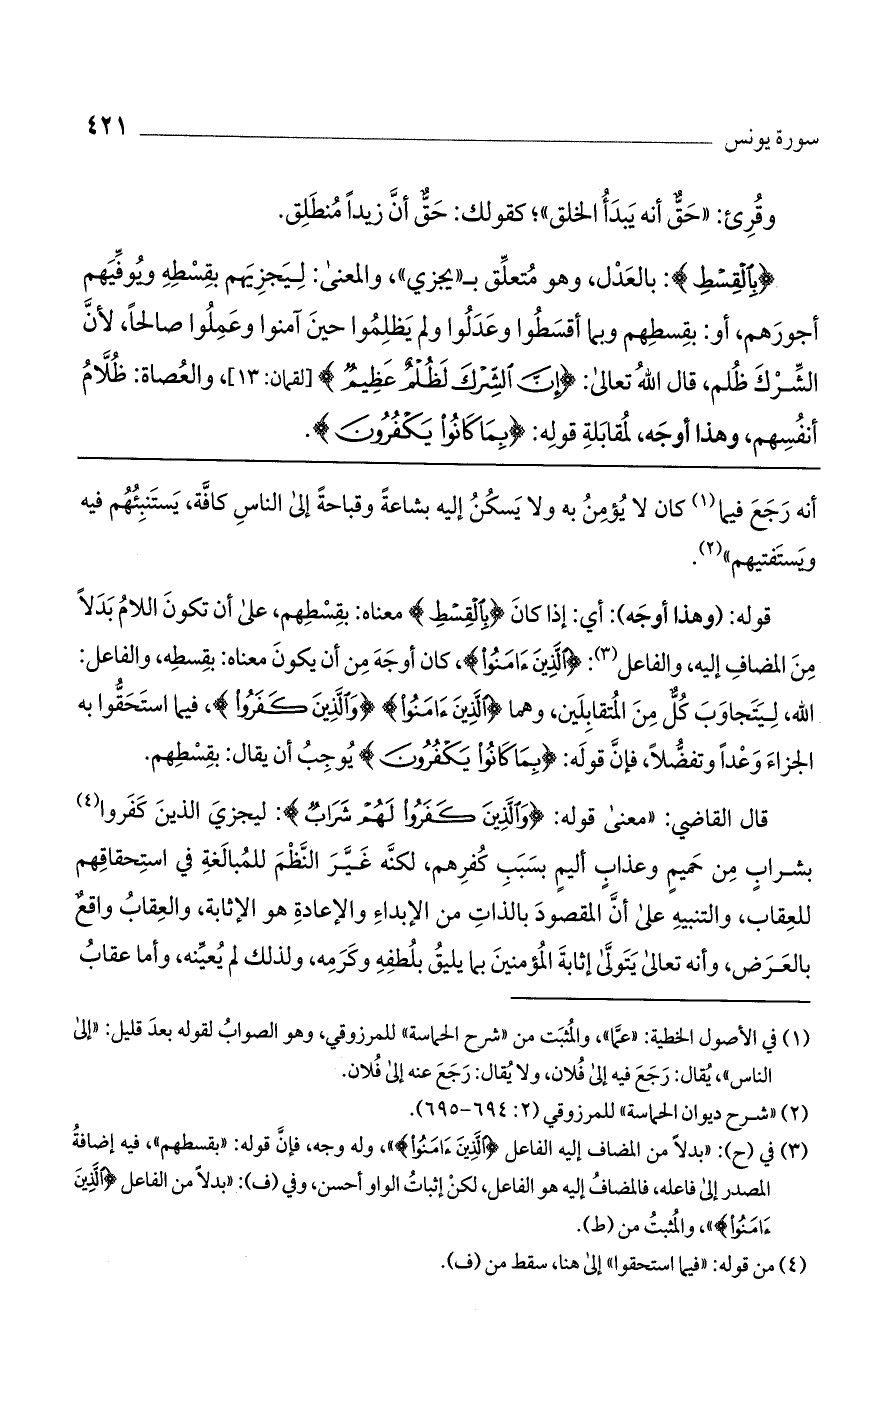 سورة يونس ٤٢١
وقُرِئ: «حَقٌّ أنه يَبدَأُ الخلق»؛ كقولك: حَقٌّ أنَّ زيداً مُنطَلِق.
﴿بِٱلْقِسْطِ﴾: بالعَدْل، وهو مُتعلِّق بـ«يجزي»، والمعنىٰ: لِيَجزِيَهم بقِسْطِهِ ويُوفِّيَهم
أجورَهم، أو: بقِسطِهم وبما أقسَطُوا وعَدَلُوا ولم يَظلِمُوا حينَ آمنوا وعَمِلُوا صالحاً، لأنَّ
الشِّرْكَ ظُلم، قال اللهُ تعالىٰ: ﴿إِنَّ ٱلشِّرْكَ لَظُلْمٌ عَظِيمٌ﴾ [لقمان: ١٣]، والعُصاة: ظُلَّامُ
أنفُسِهم، وهذا أوجَه، لمُقابلةِ قولِه: ﴿بِمَا كَانُوا۟ يَكْفُرُونَ﴾.
أنه رَجَعَ فيما(١) كان لا يُؤمِنُ به ولا يَسكُنُ إليه بشاعةً وقباحةً إلىٰ الناسِ كافَّة، يَستَنبِئُهُم فيه
ويَستَفتيهم»(٢).
قوله: (وهذا أوجَه): أي: إذا كانَ ﴿بِٱلْقِسْطِ﴾ معناه: بقِسْطِهم، علىٰ أن تكونَ اللامُ بَدَلاً
مِنَ المضافِ إليه، والفاعل(٣): ﴿ٱلَّذِينَ ءَامَنُوا۟﴾، كان أوجَهَ مِن أن يكونَ معناه: بقِسطِه، والفاعل:
الله، لِيَتَجاوَبَ كُلٌّ مِنَ المُتقابِلَين، وهما ﴿ٱلَّذِينَ ءَامَنُوا۟﴾ ﴿وَٱلَّذِينَ كَفَرُوا۟﴾، فيما استَحَقُّوا به
الجزاءَ وَعْداً وتفضُّلاً، فإنَّ قولَه: ﴿بِمَا كَانُوا۟ يَكْفُرُونَ﴾ يُوجِبُ أن يقال: بقِسْطِهم.
قال القاضي: «معنىٰ قوله: ﴿وَٱلَّذِينَ كَفَرُوا۟ لَهُمْ شَرَابٌ﴾: ليجزيَ الذينَ كَفَروا(٤)
بشرابٍ مِن حَميمٍ وعذابٍ أليمٍ بسَبَبِ كُفرِهم، لكنَّه غَيَّرَ النَّظْمَ للمُبالَغةِ في استِحقاقِهم
للعِقاب، والتنبيهِ علىٰ أنَّ المقصودَ بالذاتِ من الإبداءِ والإعادةِ هو الإثابة، والعِقابُ واقعٌ
بالعَرَض، وأنه تعالىٰ يَتَولَّىٰ إثابةَ المُؤمنينَ بما يليقُ بلُطفِهِ وكَرَمِه، ولذلك لم يُعيِّنه، وأما عقابُ
(١) في الأصول الخطية: «عمَّا»، والمُثبَت من «شرح الحماسة» للمرزوقي، وهو الصوابُ لقوله بعدَ قليل: «إلىٰ
الناس»، يُقال: رَجَعَ فيه إلىٰ فُلان، ولا يُقال: رَجَعَ عنه إلىٰ فُلان.
(٢) «شرح ديوان الحماسة» للمرزوقي (٢: ٦٩٤-٦٩٥).
(٣) في (ح): «بدلاً من المضاف إليه الفاعل ﴿ٱلَّذِينَ ءَامَنُوا۟﴾»، وله وجه، فإنَّ قوله: «بقسطهم»، فيه إضافةُ
المصدر إلىٰ فاعله، فالمضافُ إليه هو الفاعل، لكنْ إثباتُ الواو أحسن، وفي (ف): «بدلاً من الفاعل ﴿ٱلَّذِينَ
ءَامَنُوا۟﴾»، والمُثبتُ من (ط).
(٤) من قوله: «فيما استحقوا» إلىٰ هنا، سقط من (ف).